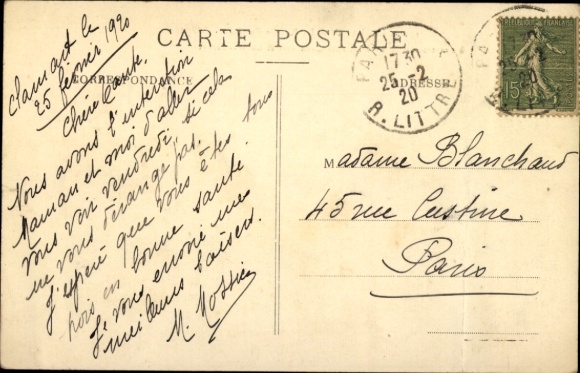 CARTE POSTALE
CORRESPONDANCE
ADRESSE
Clamart le
25 février 1920
Chère Tante.
Nous avons l'intention
Maman et moi d'aller
vous voir vendredi si cela
ne vous dérange pas.
J'espère que vous êtes tous
trois en bonne santé.
Je vous envoie mes
meilleurs baisers.
M.
PA
1730
25-2
20
R. LITTR
15
Madame Blanchaud
45 rue Custine
Paris